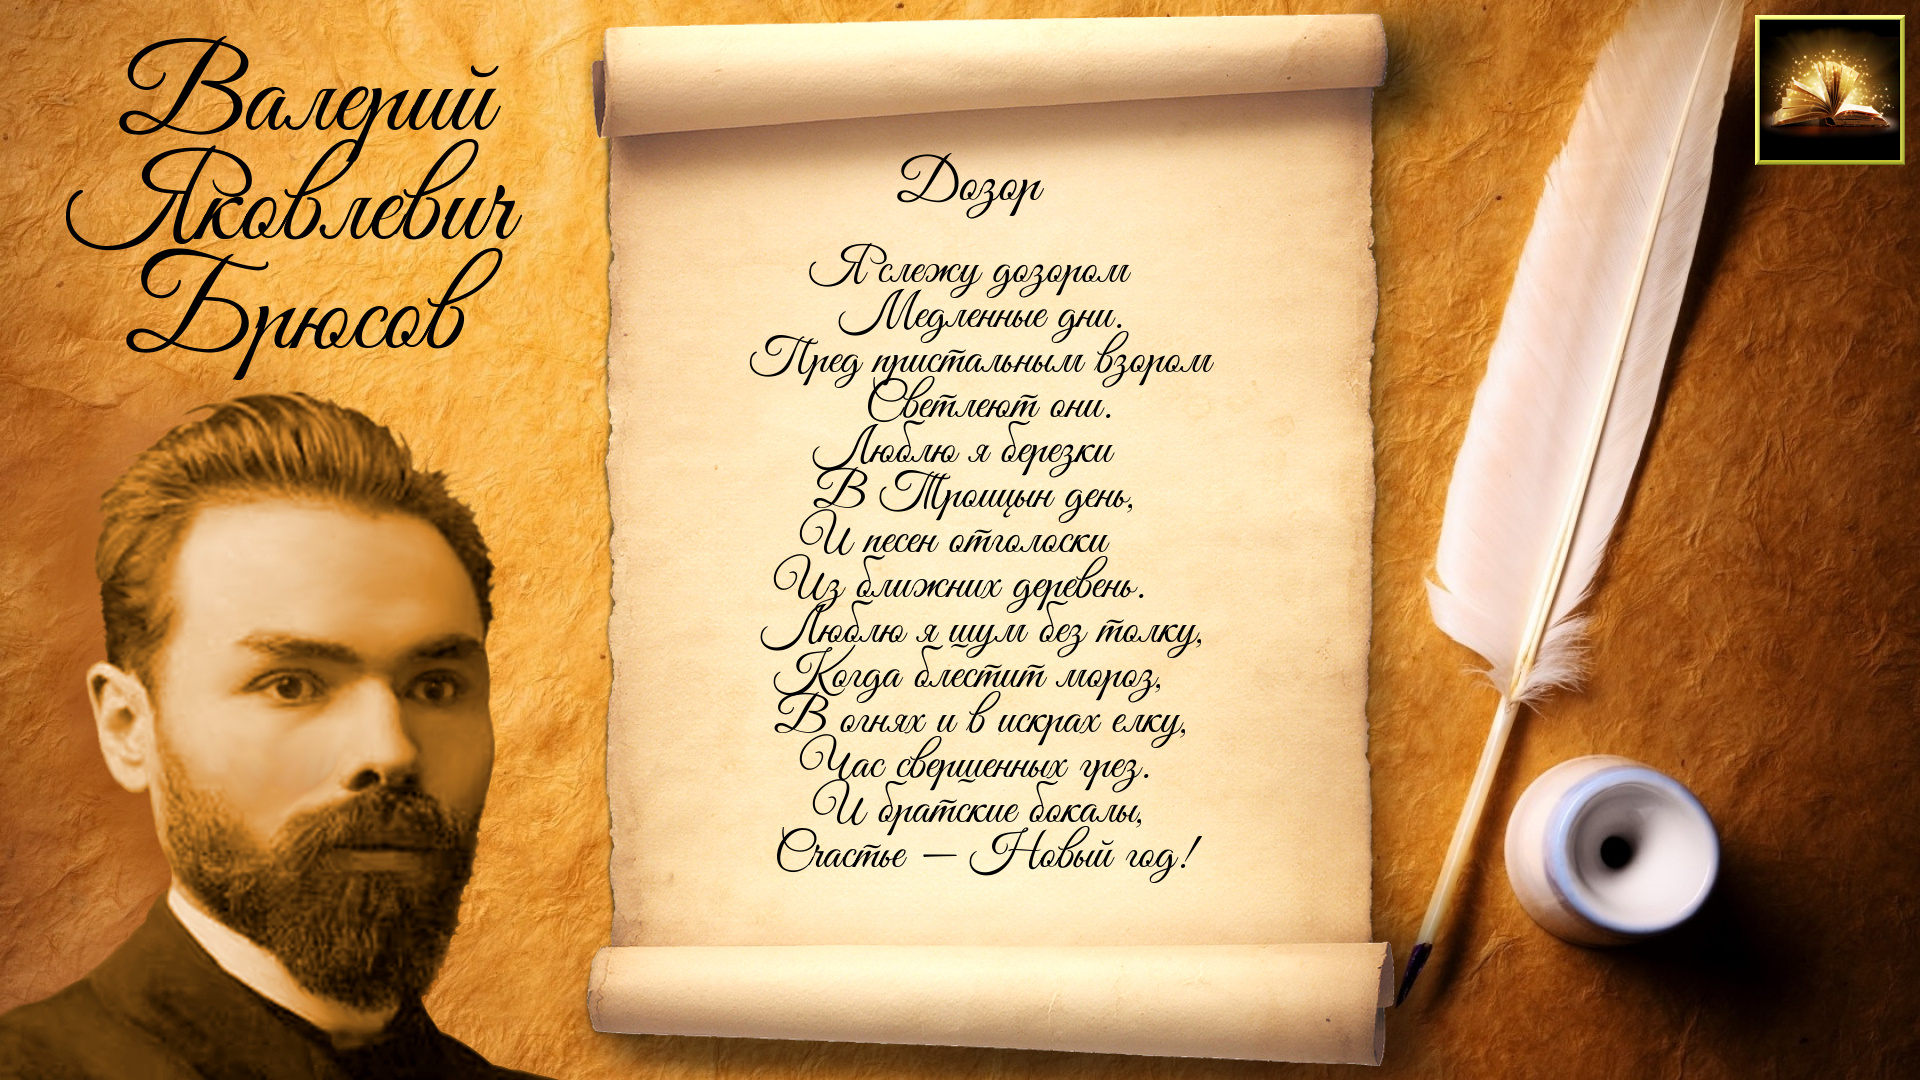 Валерий
Яковлевич
Брюсов
Дозор
Я слежу дозором
Медленные дни.
Пред пристальным взором
Светлеют они.
Люблю я березки
В Троицын день,
И песен отголоски
Из ближних деревень.
Люблю я шум без толку,
Когда блестит мороз,
В огнях и в искрах елку,
Час свершенных грез.
И братские бокалы,
Счастье — Новый год!